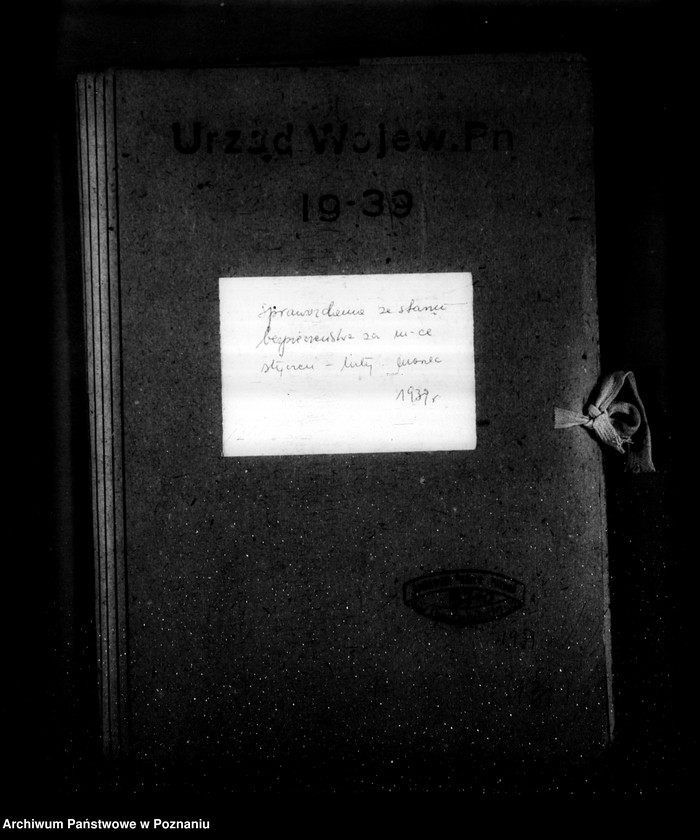 Urząd Wojew. Pn
19-39
Sprawozdania ze stanu
bezpieczeństwa za m-ce
styczeń - luty - marzec
1939 r
Archiwum Państwowe w Poznaniu